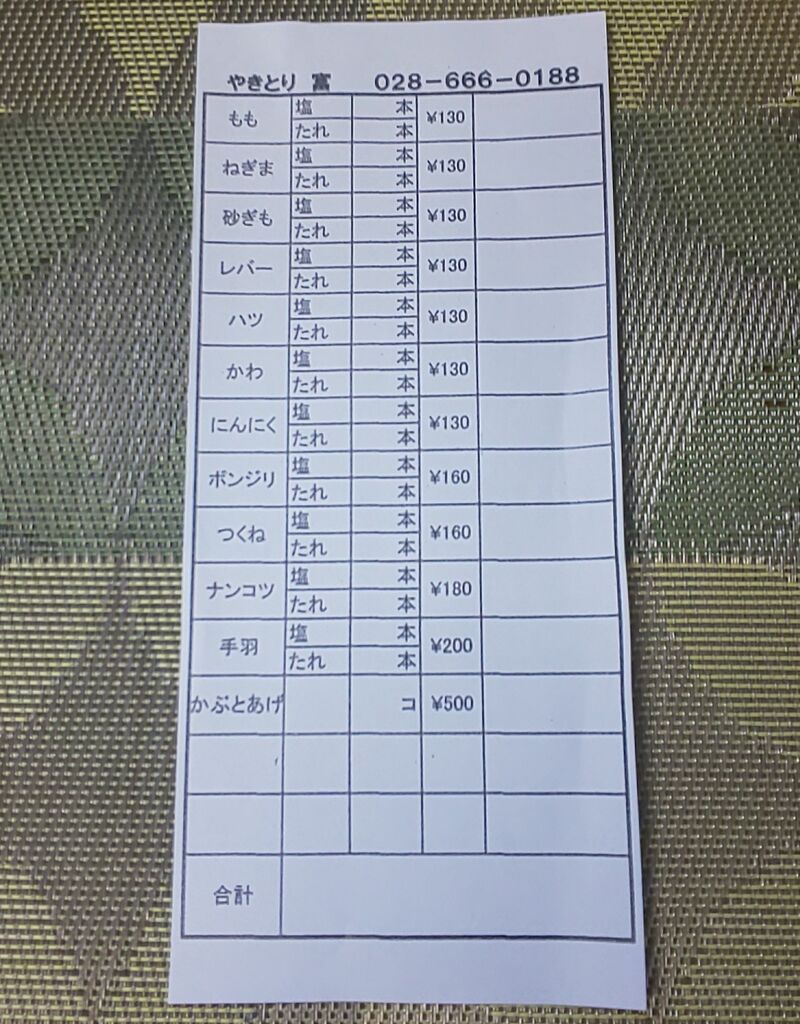 やきとり 富 028-666-0188
もも 塩 本 ¥130
たれ 本
ねぎま 塩 本 ¥130
たれ 本
砂ぎも 塩 本 ¥130
たれ 本
レバー 塩 本 ¥130
たれ 本
ハツ 塩 本 ¥130
たれ 本
かわ 塩 本 ¥130
たれ 本
にんにく 塩 本 ¥130
たれ 本
ボンジリ 塩 本 ¥160
たれ 本
つくね 塩 本 ¥160
たれ 本
ナンコツ 塩 本 ¥180
たれ 本
手羽 塩 本 ¥200
たれ 本
かぶとあげ コ ¥500
合計